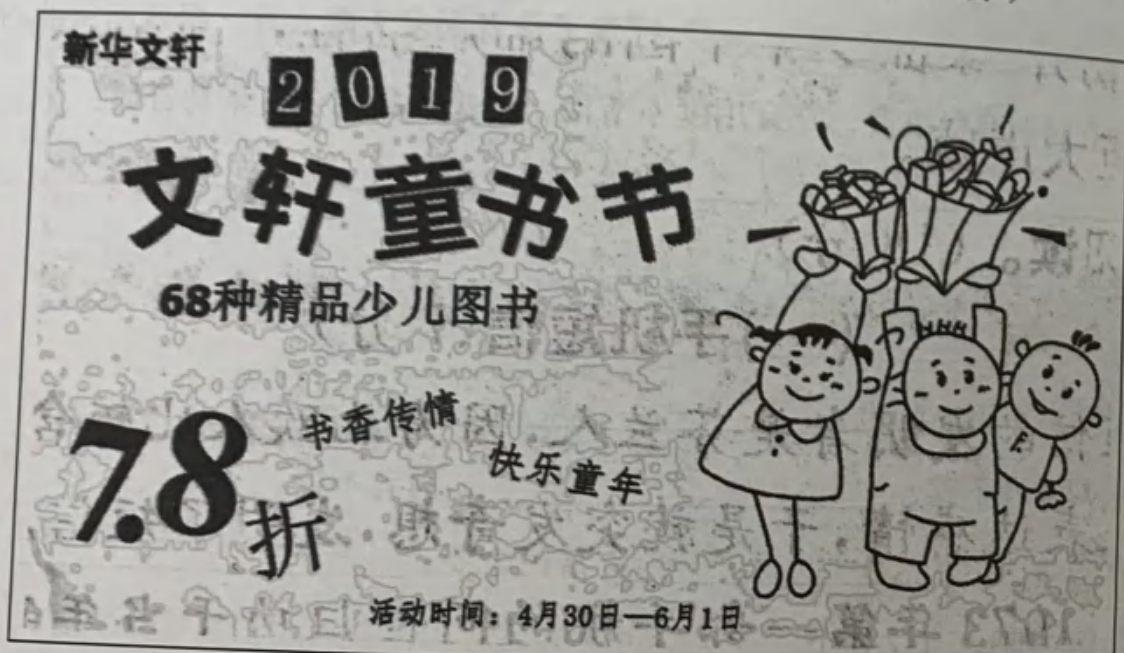 新华文轩
2019
文轩童书节
68种精品少儿图书
7.8折
书香传情
快乐童年
活动时间：4月30日—6月1日